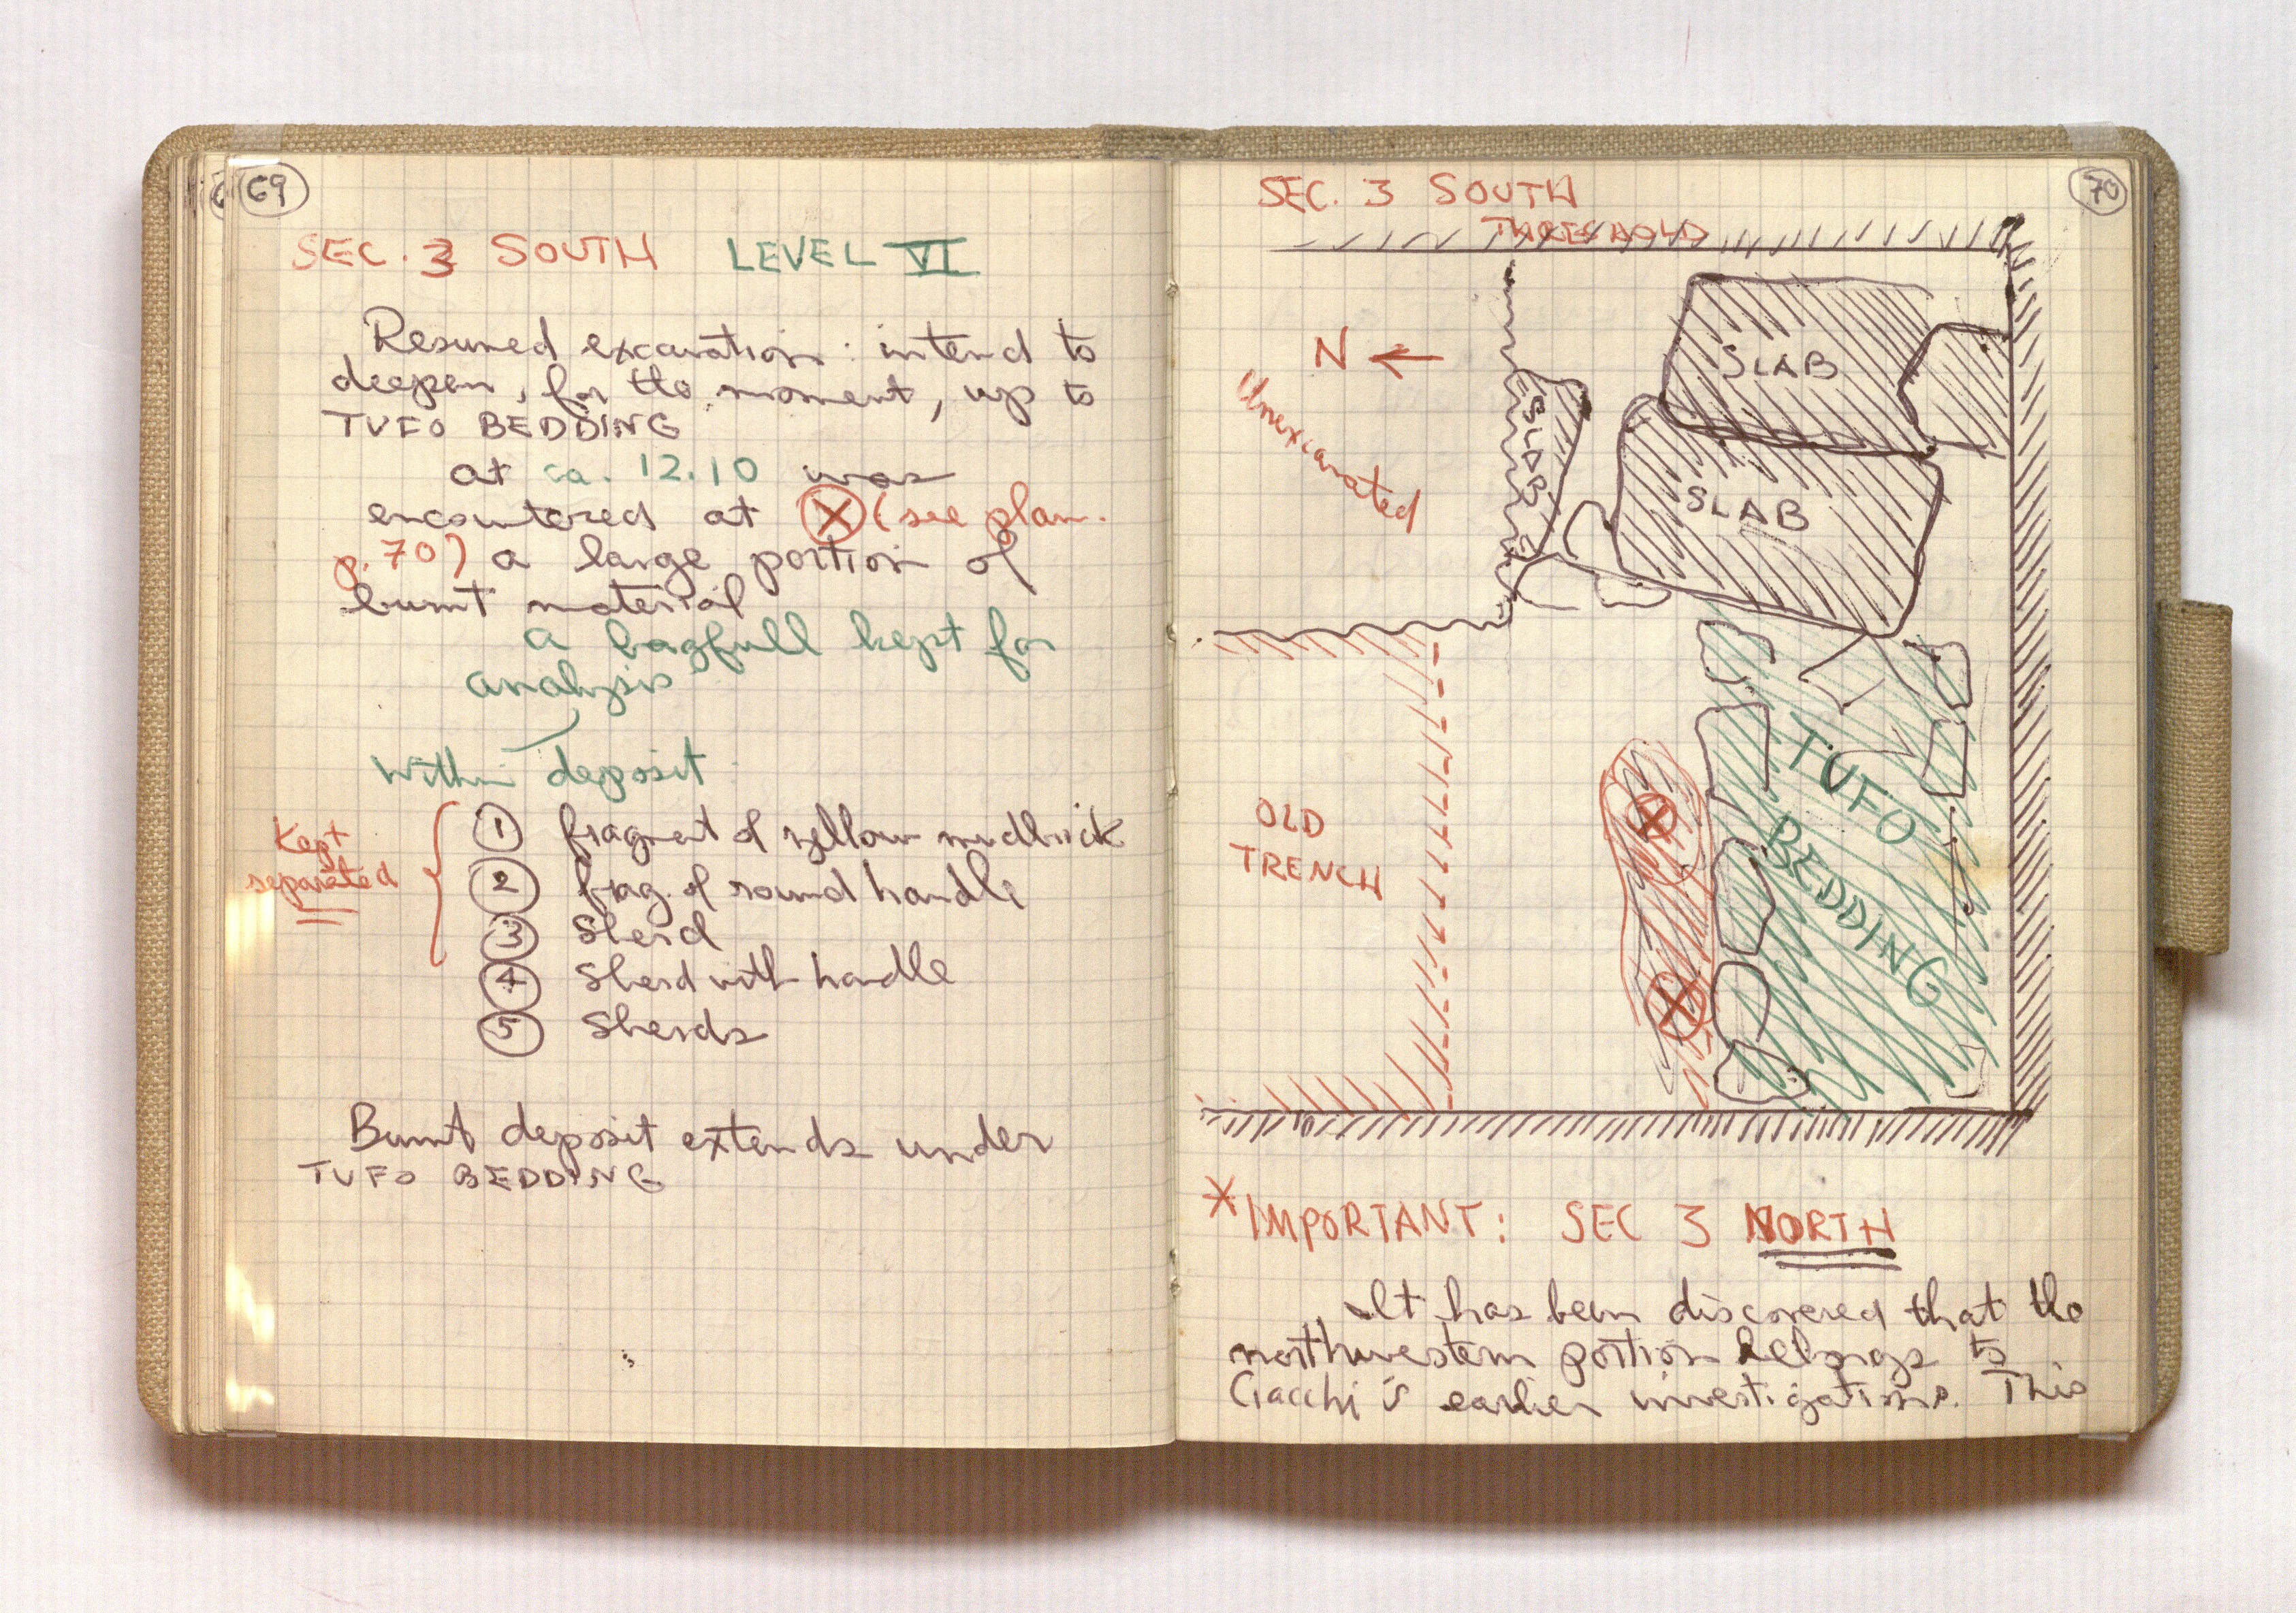 69
SEC. 3 SOUTH LEVEL VI
Resumed excavation: intend to
deepen, for the moment, up to
TUFO BEDDING
at ca. 12.10 was
encountered at X (see plan.
p. 70) a large portion of
burnt material
a bagfull kept for
analysis
Within deposit
Kept
separated
1 fragment of yellow mudbrick
2 frag. of round handle
3 Sherd
4 Sherd with handle
5 Sherds
Burnt deposit extends under
TUFO BEDDING
70
SEC. 3 SOUTH
THRESHOLD
N
Unexcavated
SLAB
SLAB
SLAB
TUFO
BEDDING
X
X
OLD
TRENCH
*IMPORTANT: SEC 3 NORTH
It has been discovered that the
northwestern portion belongs to
Ciacchi's earlier investigations. This